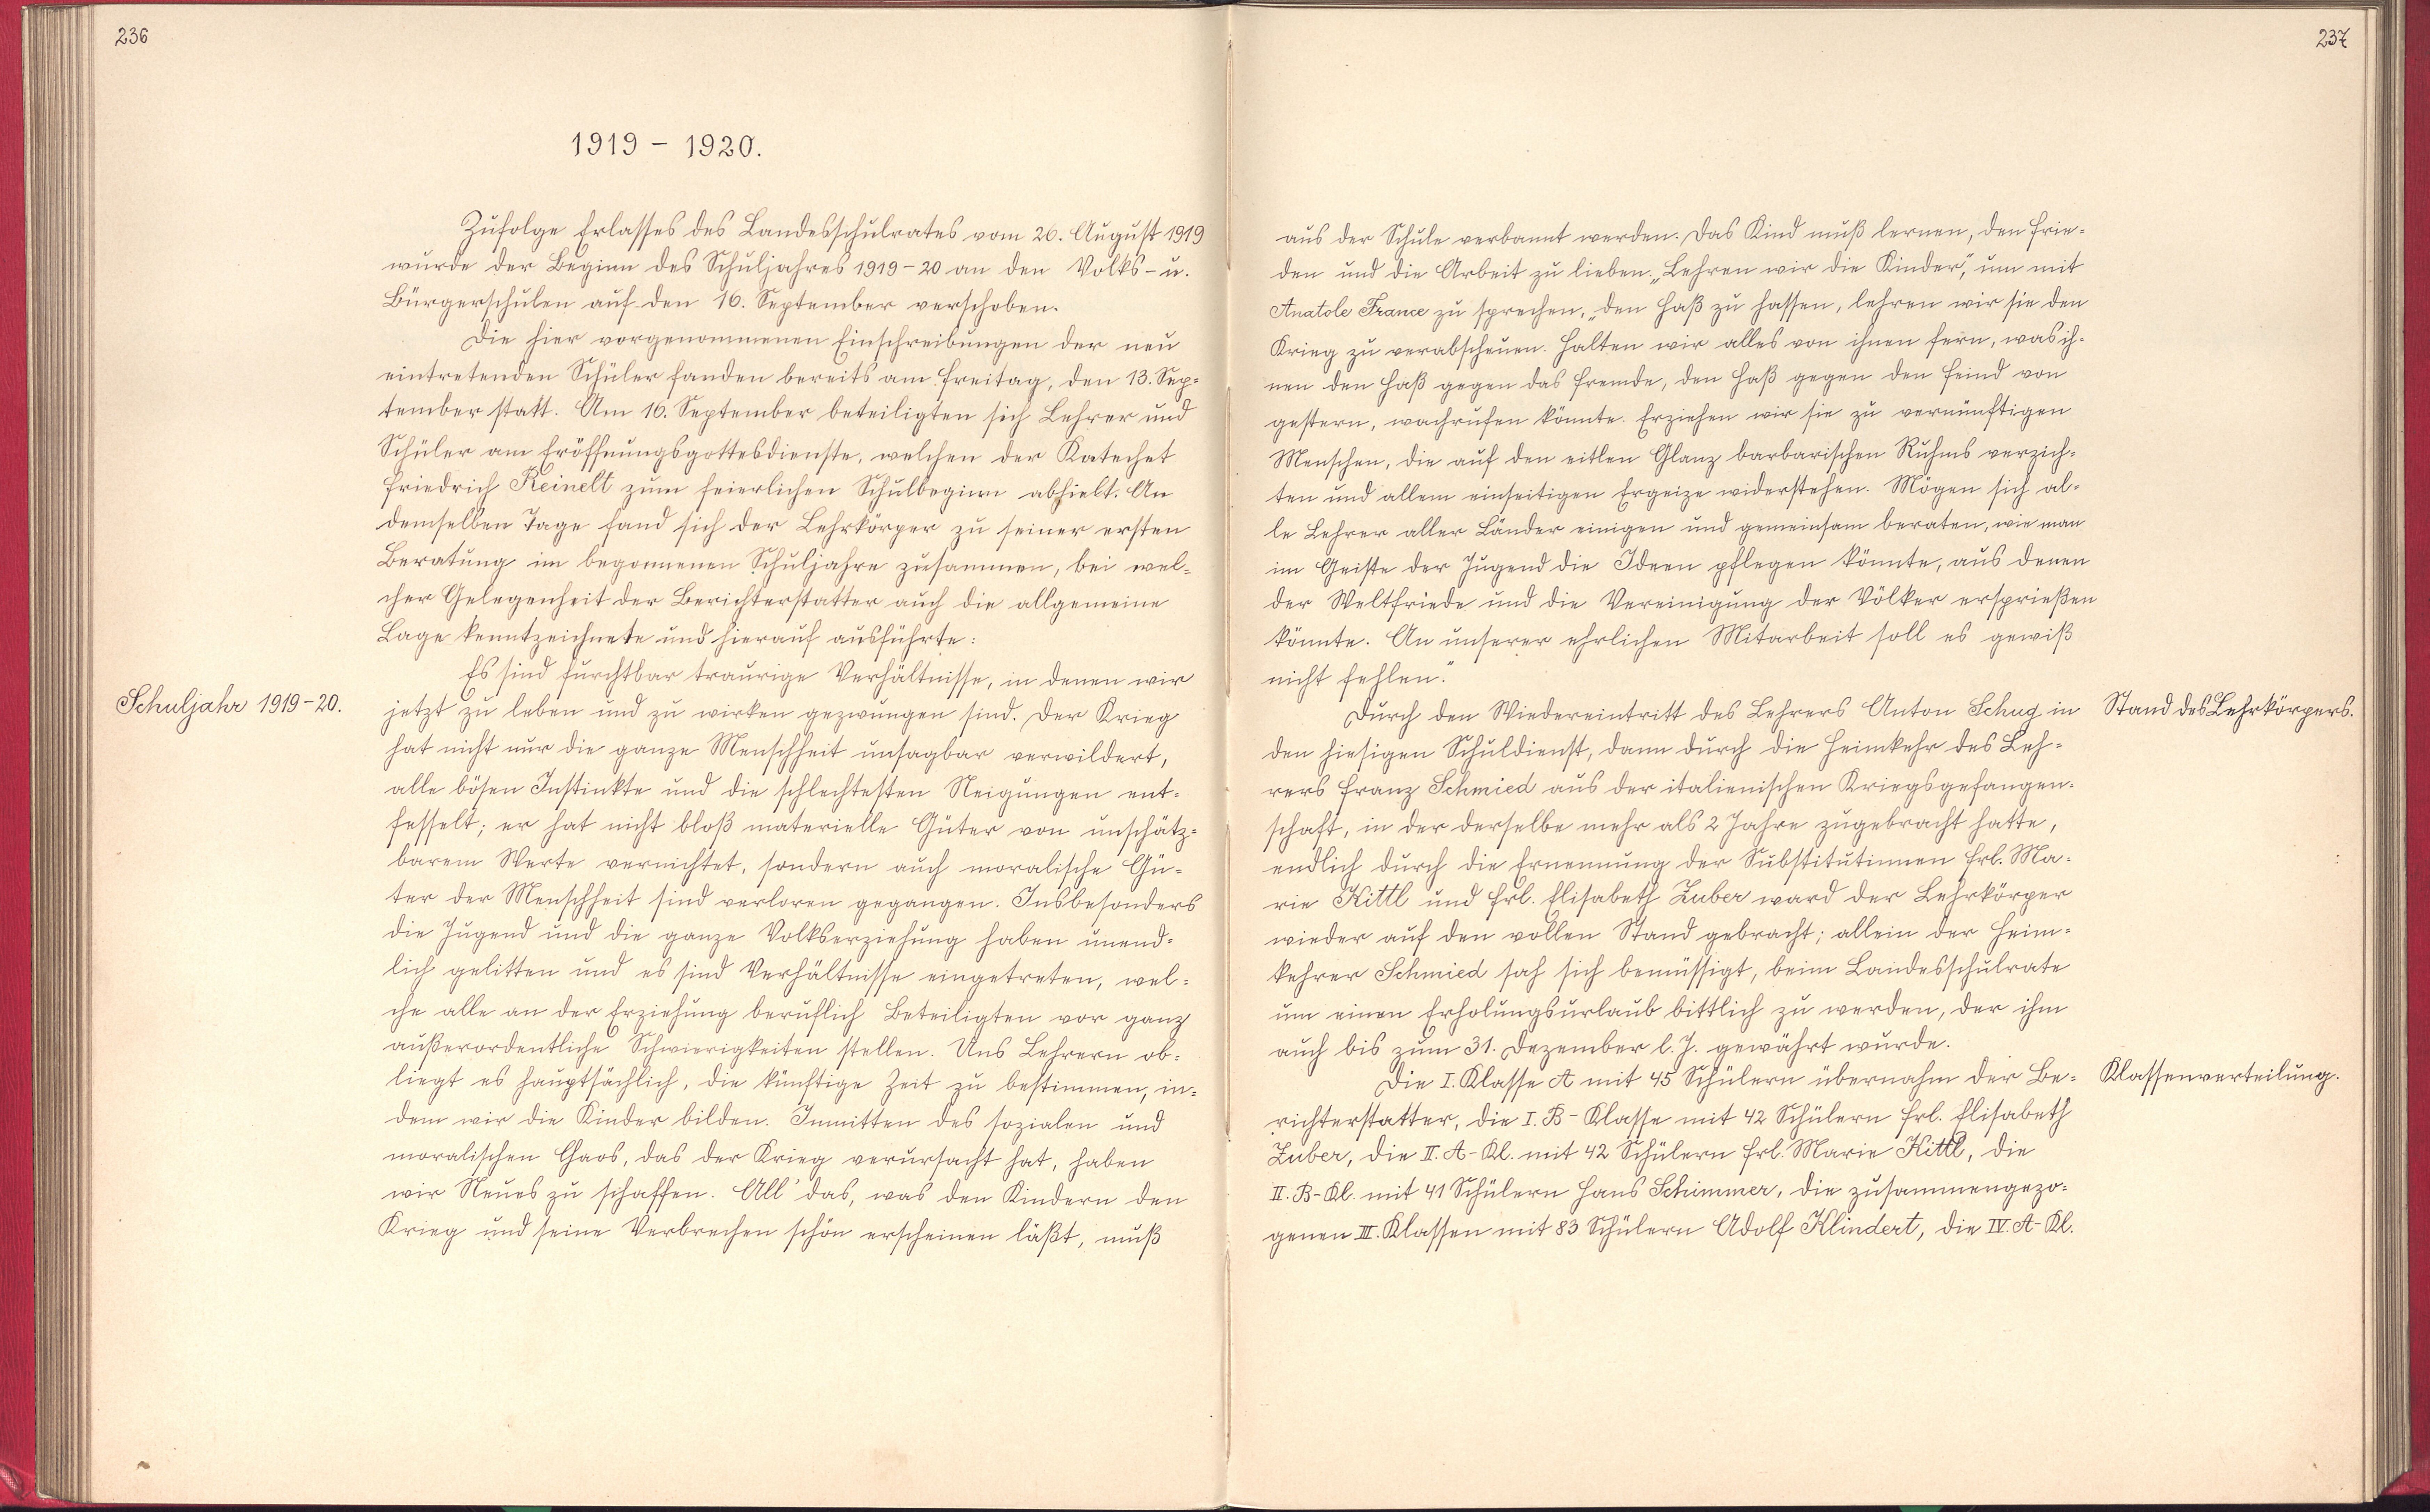 236
1919 - 1920.
Zufolge Erlasses des Landesschulrates vom 26. August 1919
wurde der Beginn des Schuljahres 1919-20 an den Volks- u.
Bürgerschulen auf den 16. September verschoben.
Die hier vorgenommenen Einschreibungen der neu
eintretenden Schüler fanden bereits am Freitag, den 13. Sep=
tember statt. Am 16. September beteiligten sich Lehrer und
Schüler am Eröffnungsgottesdienste, welchen der Katechet
Friedrich Reinelt zum feierlichen Schulbeginn abhielt. An
demselben Tage fand sich der Lehrkörper zu seiner ersten
Beratung im begonnenen Schuljahre zusammen, bei wel=
cher Gelegenheit der Berichterstatter auch die allgemeine
Lage kenntzeichnete und hierauf ausführte:
Es sind furchtbar traurige Verhältnisse, in denen wir
Schuljahr 1919-20.
jetzt zu leben und zu wirken gezwungen sind. Der Krieg
hat nicht nur die ganze Menschheit unsagbar verwildert,
alle bösen Instinkte und die schlechtesten Neigungen ent=
fesselt; er hat nicht bloß materielle Güter von unschätz=
barem Werte vernichtet, sondern auch moralische Gü=
ter der Menschheit sind verloren gegangen. Insbesonders
die Jugend und die ganze Volkserziehung haben unend=
lich gelitten und es sind Verhältnisse eingetreten, wel=
che alle an der Erziehung beruflich Beteiligten vor ganz
außerordentliche Schwierigkeiten stellen. Uns Lehrern ob=
liegt es hauptsächlich, die künftige Zeit zu bestimmen, in=
dem wir die Kinder bilden. Inmitten des sozialen und
moralischen Chaos, das der Krieg verursacht hat, haben
wir Neues zu schaffen. All' das, was den Kindern den
Krieg und seine Verbrechen schön erscheinen läßt, muß
237
aus der Schule verbannt werden. Das Kind muß lernen, den Frie=
den und die Arbeit zu lieben. „Lehren wir die Kinder", um mit
Anatole France zu sprechen, „den Haß zu hassen, lehren wir sie den
Krieg zu verabscheuen. Halten wir alles von ihnen fern, was ih=
nen den Haß gegen das Fremde, den Haß gegen den Feind von
gestern, wachrufen könnte. Erziehen wir sie zu vernünftigen
Menschen, die auf den eitlen Glanz barbarischen Ruhms verzich=
ten und allem einseitigen Ergeize widerstehen. Mögen sich al=
le Lehrer aller Länder einigen und gemeinsam beraten, wie man
im Geiste der Jugend die Ideen pflegen könnte, aus denen
der Weltfriede und die Vereinigung der Völker ersprießen
könnte. An unserer ehrlichen Mitarbeit soll es gewiß
nicht fehlen."
Durch den Wiedereintritt des Lehrers Anton Schug in
Stand des Lehrkörpers.
den hiesigen Schuldienst, dann durch die Heimkehr des Leh=
rers Franz Schmied aus der italienischen Kriegsgefangen=
schaft, in der derselbe mehr als 2 Jahre zugebracht hatte,
endlich durch die Ernennung der Substitutinnen Frl. Ma=
rie Kittl und Frl. Elisabeth Zuber ward der Lehrkörper
wieder auf den vollen Stand gebracht; allein der Heim=
kehrer Schmied sah sich bemüssigt, beim Landesschulrate
um einen Erholungsurlaub bittlich zu werden, der ihm
auch bis zum 31. Dezember l. J. gewährt wurde.
Die I. Klasse A mit 45 Schülern übernahm der Be=
Klassenverteilung.
richterstatter, die I. B- Klasse mit 42 Schülern Frl. Elisabeth
Zuber, die II. A-Kl. mit 42 Schülern Frl. Marie Kittl, die
II. B-Kl. mit 41 Schülern Hans Schimmer, die zusammengezo=
genen III. Klassen mit 83 Schülern Adolf Klindert, die IV. A-Kl.